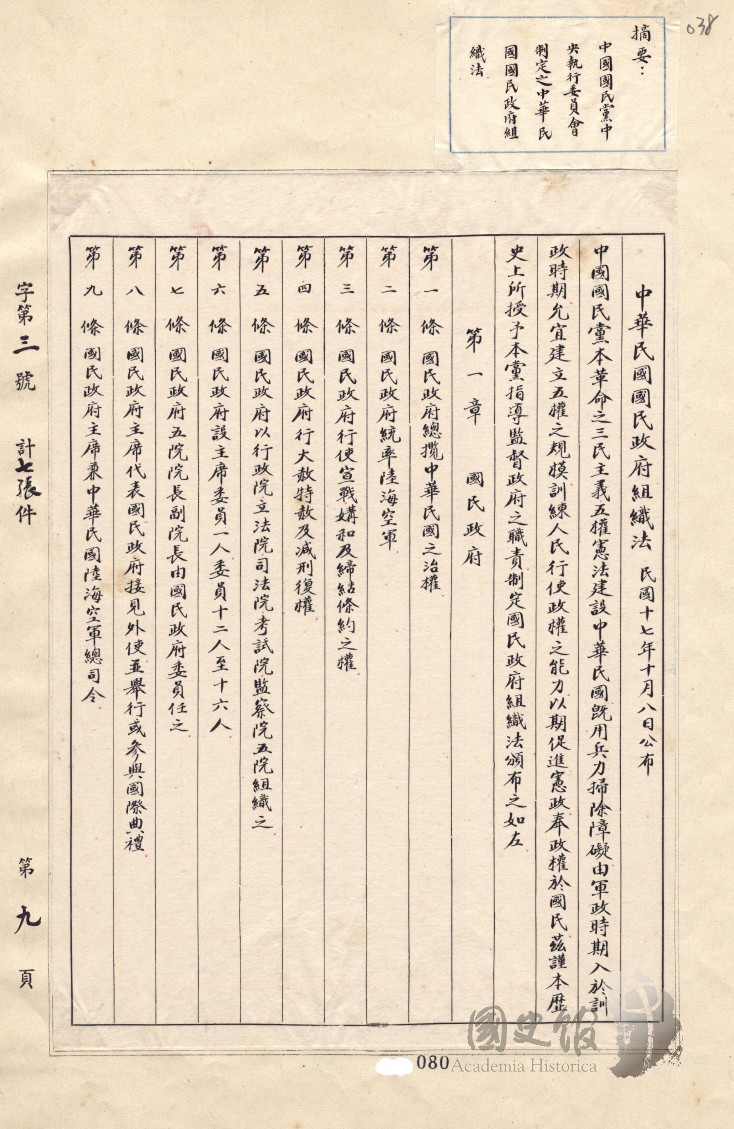 038
摘要：
中國國民黨中
央執行委員會
制定之中華民
國國民政府組
織法
中華民國國民政府組織法 民國十七年十月八日公布
中國國民黨本革命之三民主義五權憲法建設中華民國既用兵力掃除障礙由軍政時期入於訓
政時期允宜建立五權之規模訓練人民行使政權之能力以期促進憲政奉政權於國民茲謹本歷
史上所授予本黨指導監督政府之職責制定國民政府組織法頒布之如左
第一章 國民政府
第一條 國民政府總攬中華民國之治權
第二條 國民政府統率陸海空軍
第三條 國民政府行使宣戰媾和及締結條約之權
第四條 國民政府行大赦特赦及減刑復權
第五條 國民政府以行政院立法院司法院考試院監察院五院組織之
第六條 國民政府設主席委員一人委員十二人至十六人
第七條 國民政府五院院長副院長由國民政府委員任之
第八條 國民政府主席代表國民政府接見外使並舉行或參與國際典禮
第九條 國民政府主席兼中華民國陸海空軍總司令
字第三號 計七張件 第九頁
國史館
080 Academia Historica